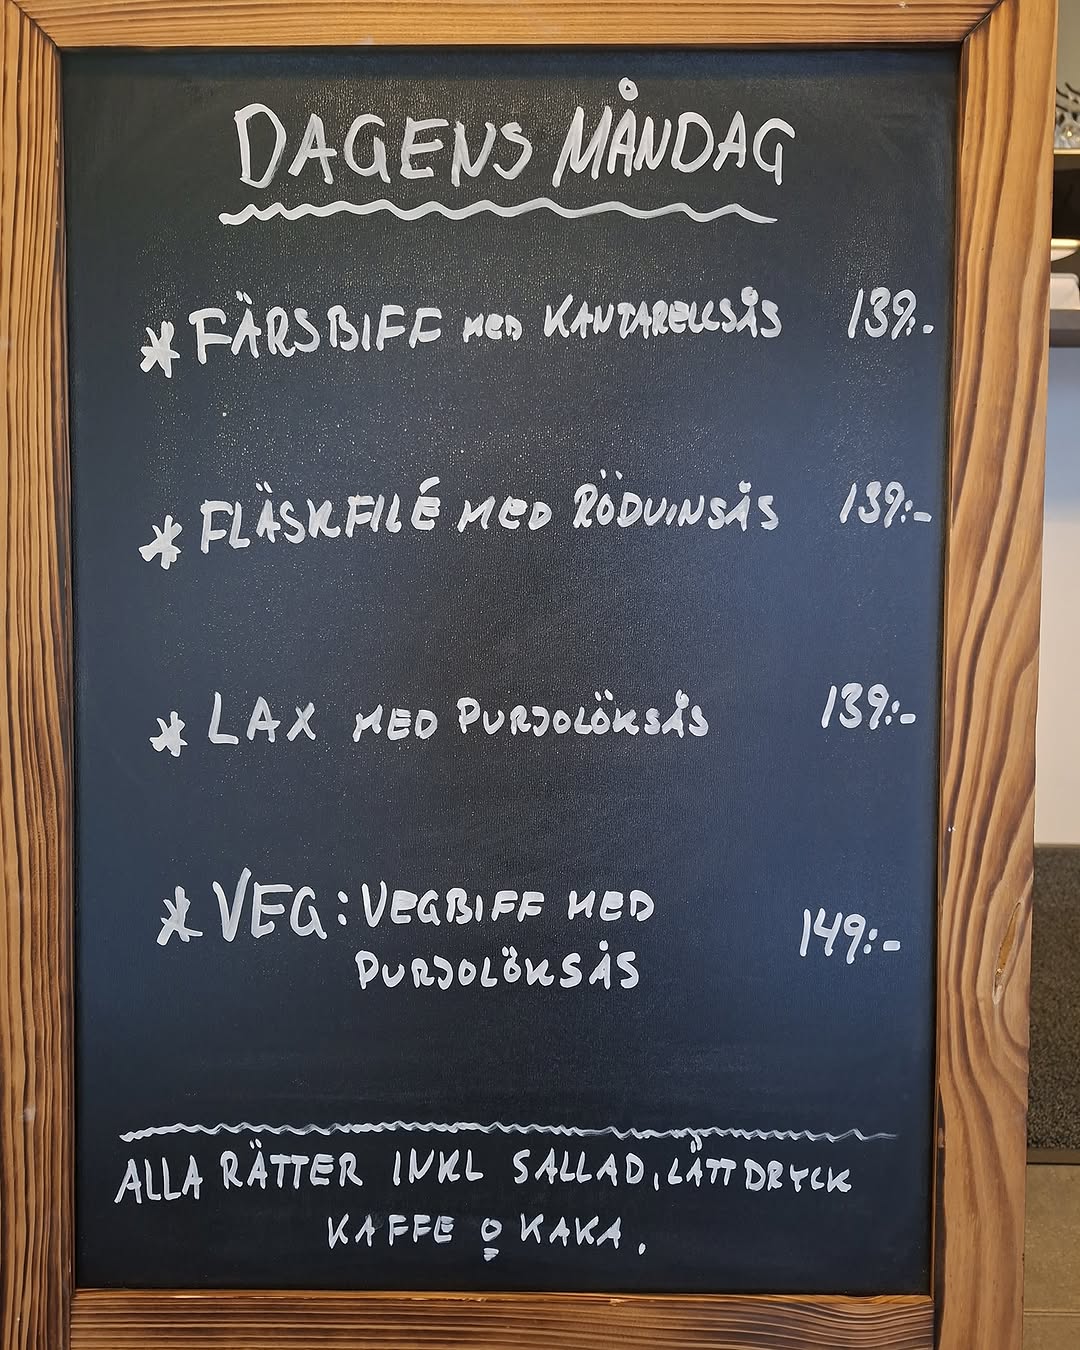 DAGENS MÅNDAG
* FÄRSBIFF MED KANTARELLSÅS 139:-
* FLÄSKFILÉ MED RÖDVINSÅS 139:-
* LAX MED PURJOLÖKSÅS 139:-
* VEG: VEGBIFF MED
PURJOLÖKSÅS 149:-
ALLA RÄTTER INKL SALLAD, LÄTTDRYCK
KAFFE o KAKA.